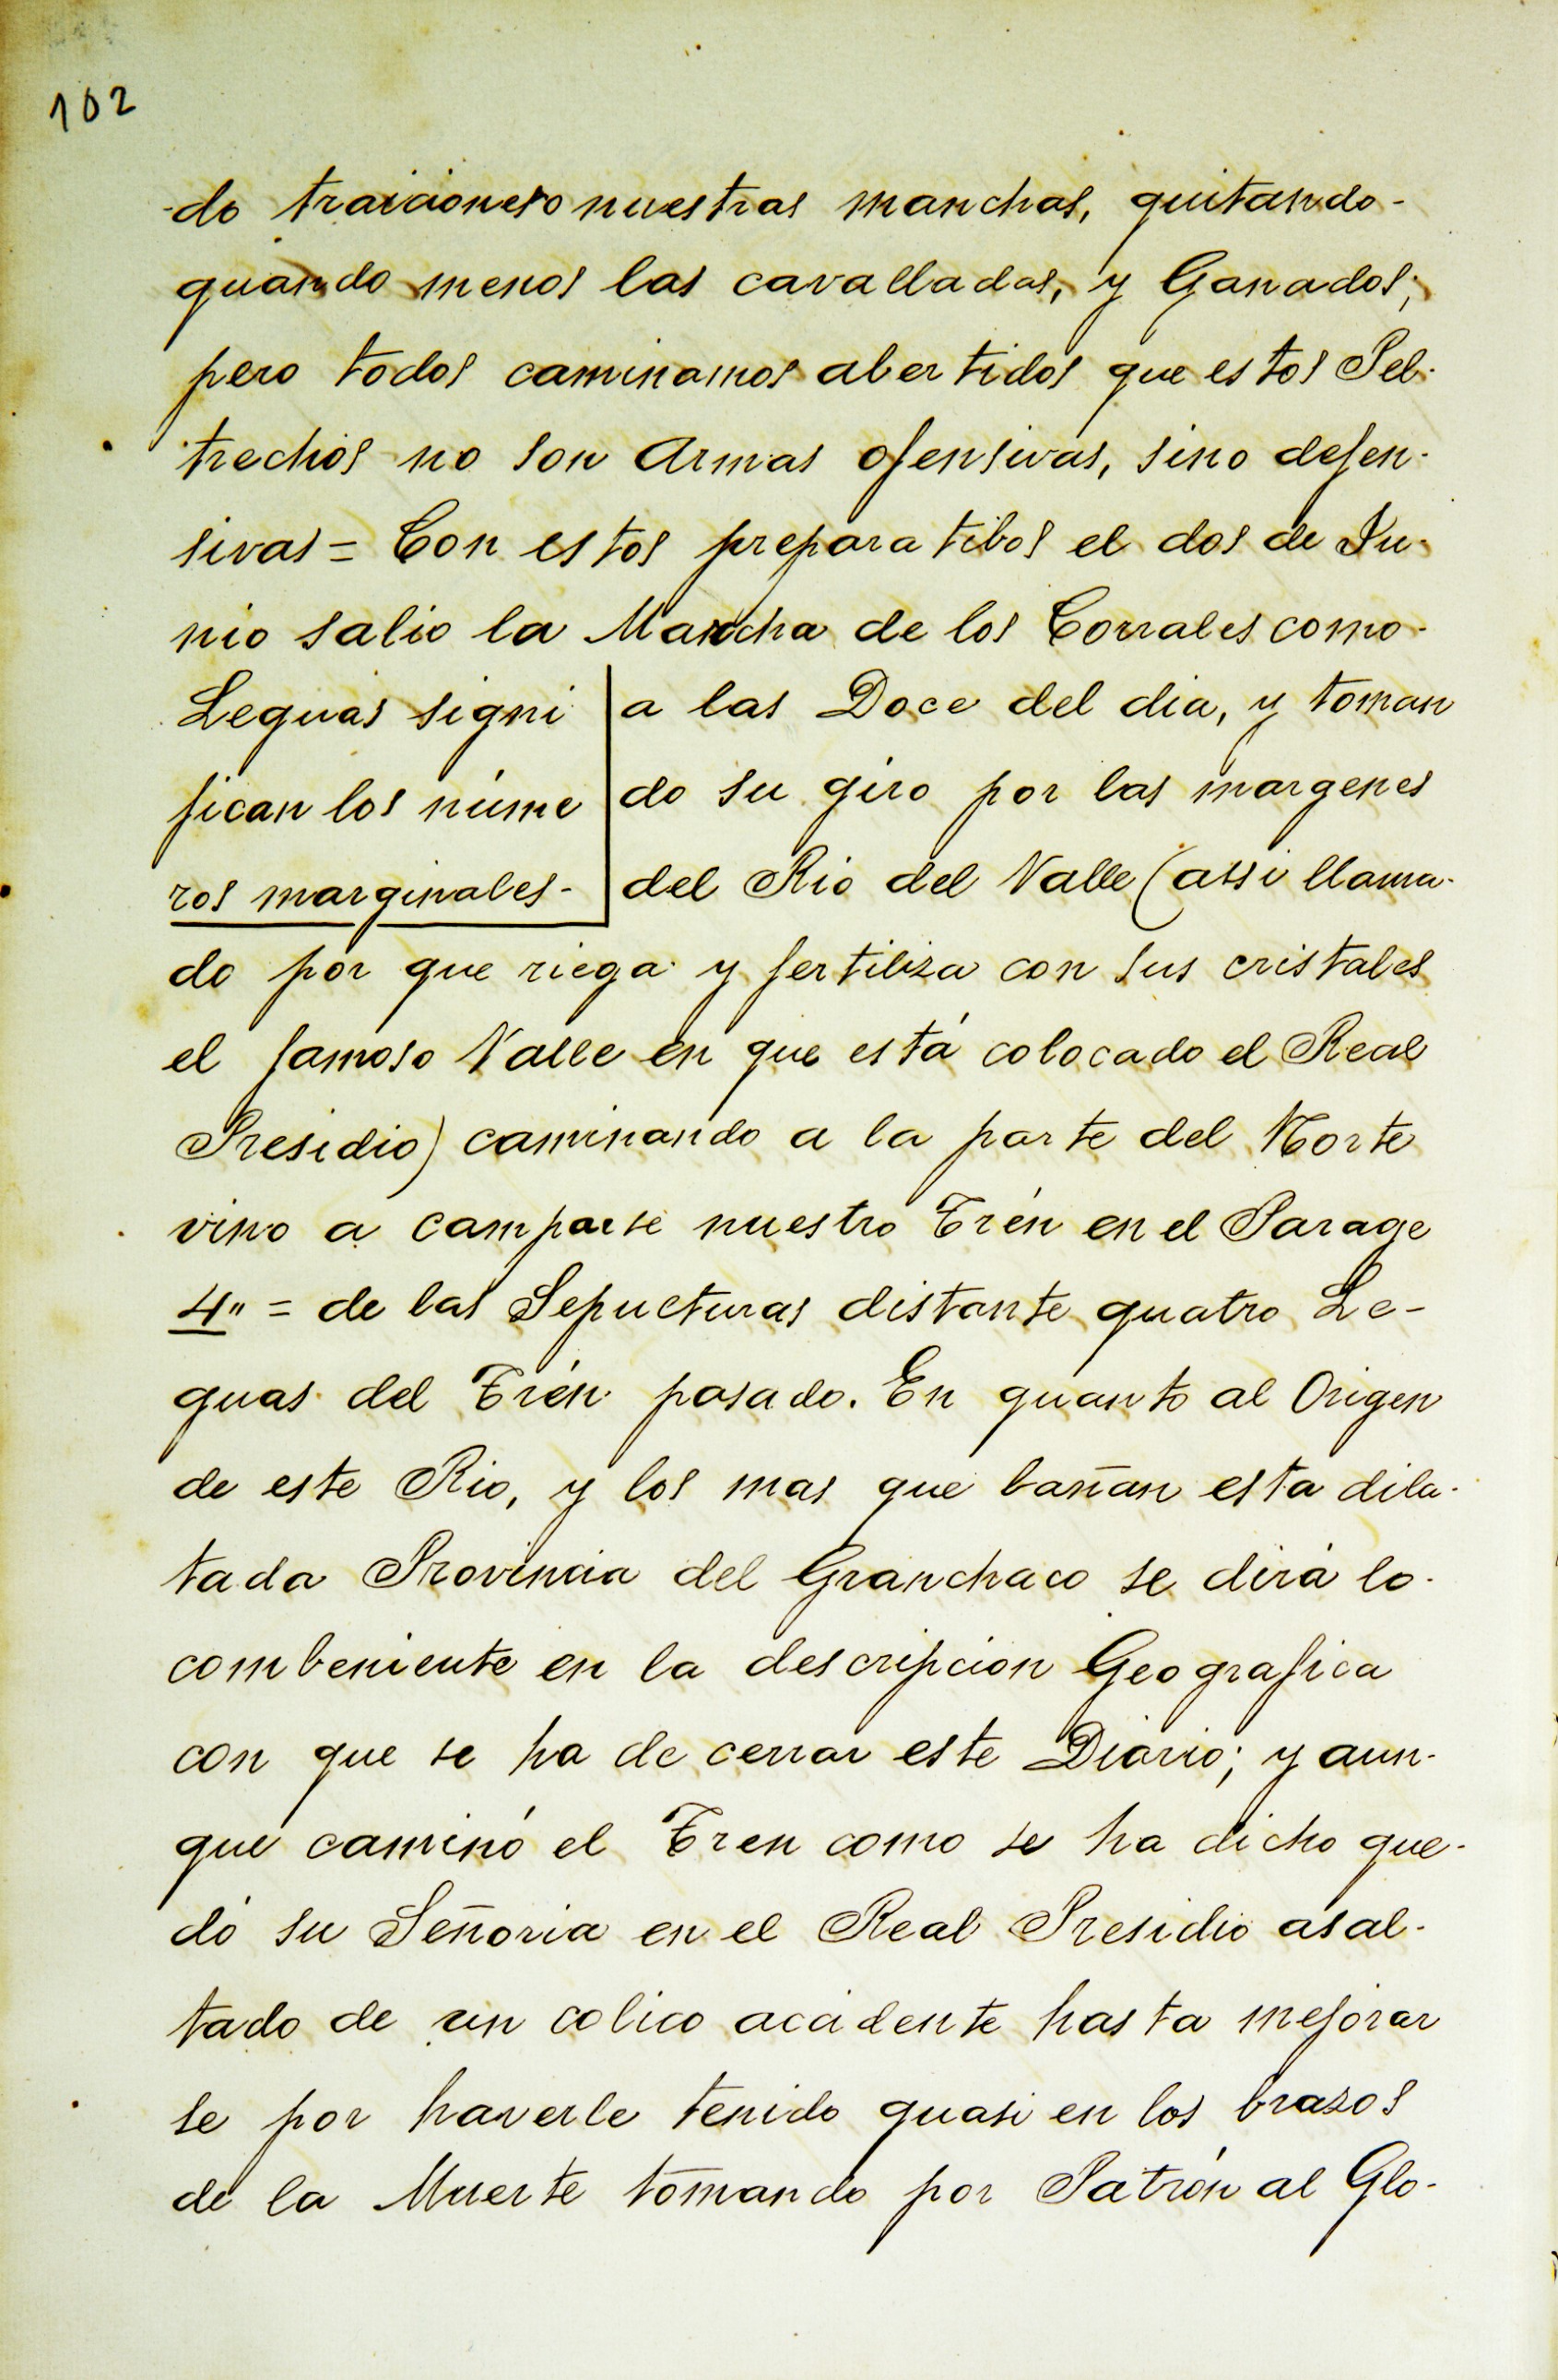 102
-do traicionero nuestras manchas, quitando-
quando menos las cavalladas, y Ganados;
pero todos caminamos abertidos que estos Pel-
trechos no son Armas ofensivas, sino defen-
sivas = Con estos preparatibos el dos de Ju-
nio salio la Marcha de los Corrales como-
Leguas signi
fican los núme
ros marginales-
a las Doce del dia, y toman
do su giro por las margenes
del Rio del Valle (assi llama-
do por que riega y fertiliza con sus cristales
el famoso Valle en que está colocado el Real
Presidio) caminando a la parte del Norte
vino a camparse nuestro Trén en el Parage
4" = de las Sepucturas distante quatro Le-
guas del Trén pasado. En quanto al Origen
de este Rio, y los mas que bañan esta dila-
tada Provincia del Granchaco se dirá lo-
combeniente en la descripcion Geografica
con que se ha de cerrar este Diario; y aun-
que caminó el Tren como se ha dicho que-
dó su Señoria en el Real Presidio asal-
tado de un colico acidente hasta mejorar
se por haverle tenido quasi en los brazos
de la Muerte tomando por Patrón al Glo-